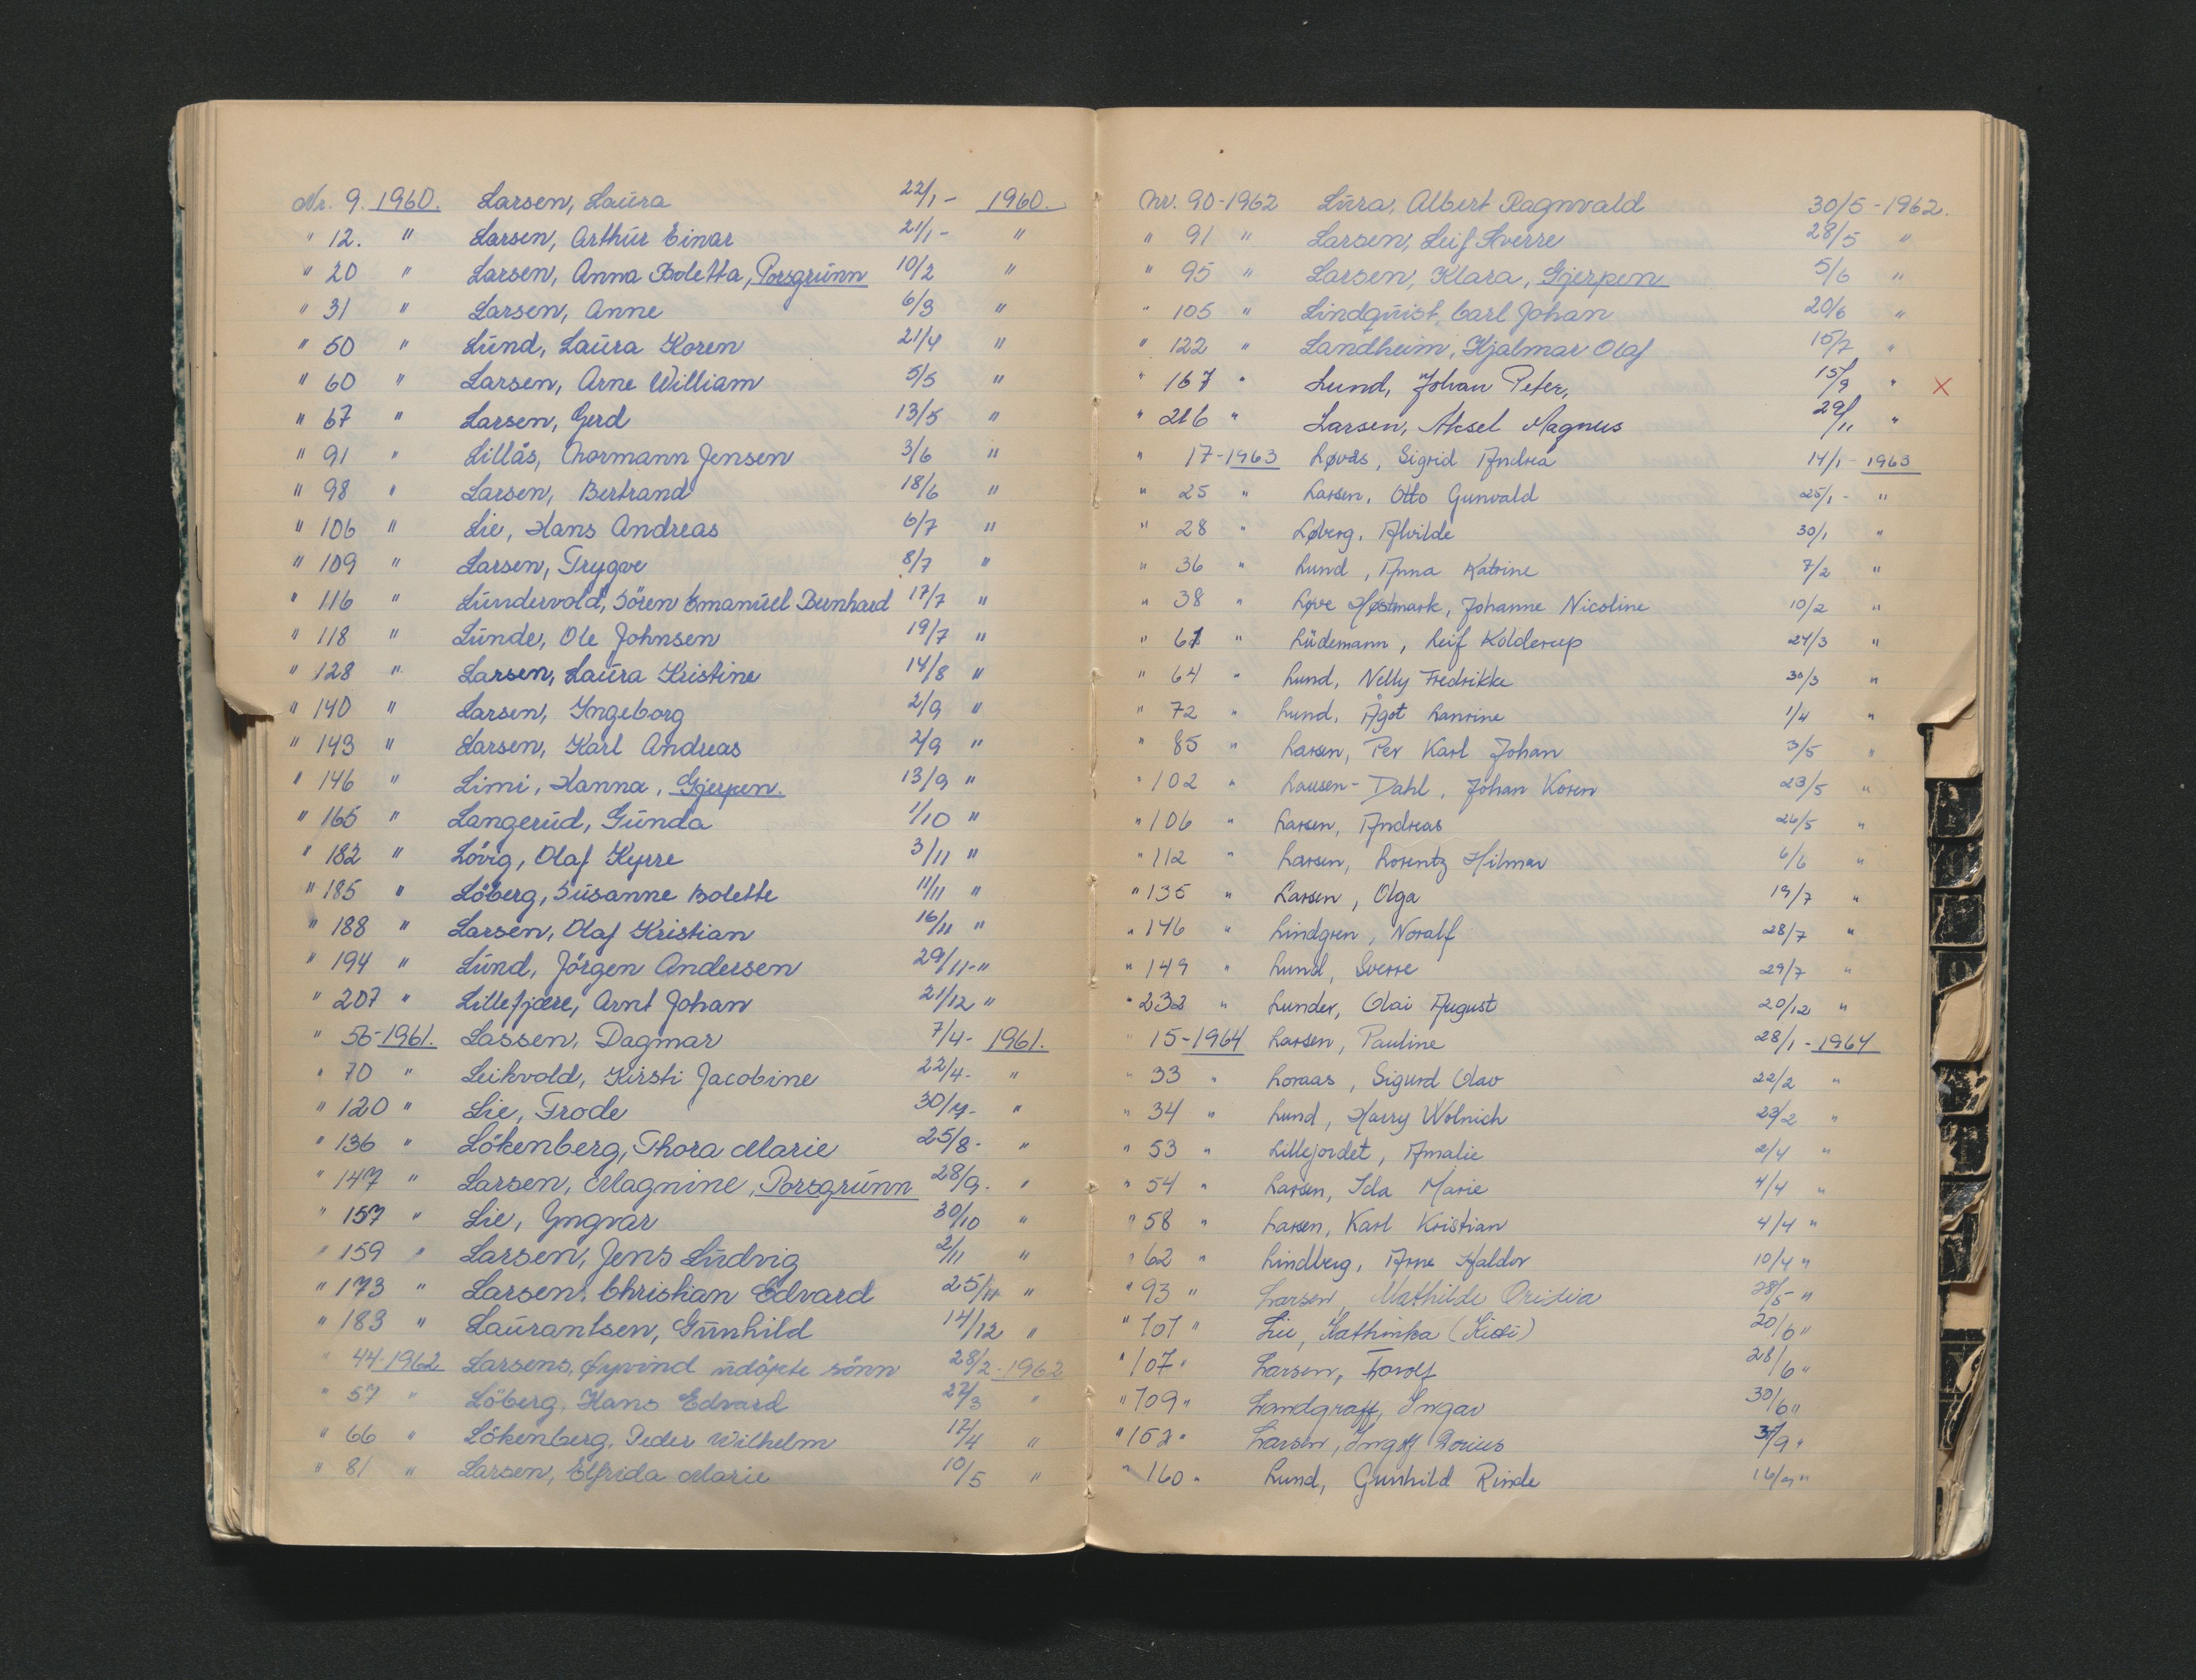 Nr. 9. 1960. Larsen, Laura 22/1- 1960.
" 12. " Larsen, Arthur Einar 21/1- "
" 20 " Larsen, Anna Boletta, Porsgrunn 10/2 "
" 31 " Larsen, Anne 6/3 "
" 50 " Lund, Laura Koren 21/4 "
" 60 " Larsen, Arne William 5/5 "
" 67 " Larsen, Gerd 13/5 "
" 91 " Lillås, Normann Jensen 3/6 "
" 98 " Larsen, Bertrand 18/6 "
" 106 " Lie, Hans Andreas 6/7 "
" 109 " Larsen, Trygve 8/7 "
" 116 " Lundervold, Sören Emanuel Bernhard 17/7 "
" 118 " Lunde, Ole Johnsen 19/7 "
" 128 " Larsen, Laura Kristine 14/8 "
" 140 " Larsen, Ingeborg 2/9 "
" 143 " Larsen, Karl Andreas 2/9 "
" 146 " Limi, Hanna, Gjerpen. 13/9 "
" 165 " Langerud, Gunda 1/10 "
" 182 " Lövig, Olaf Kyrre 3/11 "
" 185 " Löberg, Susanne Bolette 11/11 "
" 188 " Larsen, Olaf Kristian 16/11 "
" 194 " Lund, Jörgen Andersen 29/11-"
" 207 " Lillefjære, Arnt Johan 21/12 "
" 56-1961. Lassen, Dagmar 7/4- 1961.
" 70 " Leikvold, Kirsti Jacobine 22/4- "
" 120 " Lie, Frode 30/7- "
" 136 " Lökenberg, Thora Marie 25/8- "
" 147 " Larsen, Magnine, Porsgrunn 28/9- "
" 157 " Lie, Yngvar 30/10 "
" 159 " Larsen, Jens Ludvig 2/11 "
" 173 " Larsen, Christian Edvard 25/11 "
" 183 " Laurantsen, Gunhild 14/12 "
" 44-1962 Larsens, Øyvind udöpte sönn 28/2-1962
" 57 " Löberg, Hans Edvard 27/3 "
" 66 " Lökenberg, Peder Wilhelm 17/4 "
" 81 " Larsen, Elfrida Marie 10/5 "
Nr. 90-1962 Lura, Albert Ragnvald 30/5-1962.
" 91 " Larsen, Leif Sverre 28/5 "
" 95 " Larsen, Klara, Gjerpen 5/6 "
" 105 " Lindquist, Carl Johan 20/6 "
" 122 " Landheim, Hjalmar Olaf 15/7 "
" 167 " Lund, Johan Peter, 15/9 " X
" 216 " Larsen, Aksel Magnus 29/11 "
" 17-1963 Løvås, Sigrid Andrea 14/1-1963
" 25 " Larsen, Otto Gunvald 25/1- "
" 28 " Løberg, Alvilde 30/1 "
" 36 " Lund, Anna Katrine 7/2 "
" 38 " Løve Høstmark, Johanne Nicoline 10/2 "
" 61 " Lüdemann, Leif Kolderup 24/3 "
" 64 " Lund, Nelly Fredrikke 30/3 "
" 72 " Lund, Ågot Laurine 1/4 "
" 85 " Larsen, Per Karl Johan 3/5 "
" 102 " Lausen-Dahl, Johan Koren 23/5 "
" 106 " Larsen, Andreas 26/5 "
" 112 " Larsen, Lorentz Hilmar 6/6 "
" 135 " Larsen, Olga 19/7 "
" 146 " Lindgren, Noralf 28/7 "
" 149 " Lund, Sverre 29/7 "
" 232 " Lunder, Olai August 20/12 "
" 15-1964 Larsen, Pauline 28/1-1964
" 33 " Loraas, Sigurd Olav 22/2 "
" 34 " Lund, Harry Wolnich 23/2 "
" 53 " Lillejordet, Amalie 2/4 "
" 54 " Larsen, Ida Marie 4/4 "
" 58 " Larsen, Karl Kristian 4/4 "
" 62 " Lindberg, Arne Haldor 10/4 "
" 93 " Larsen, Mathilde 28/5 "
" 101 " Lie, Kathinka 20/6 "
" 107 " Larsen, 28/6 "
" 109 " Landgraff, Ingar 30/6 "
" 152 " Larsen, 3/9 "
" 160 " Lund, Gunhild Rinde 16/9 "